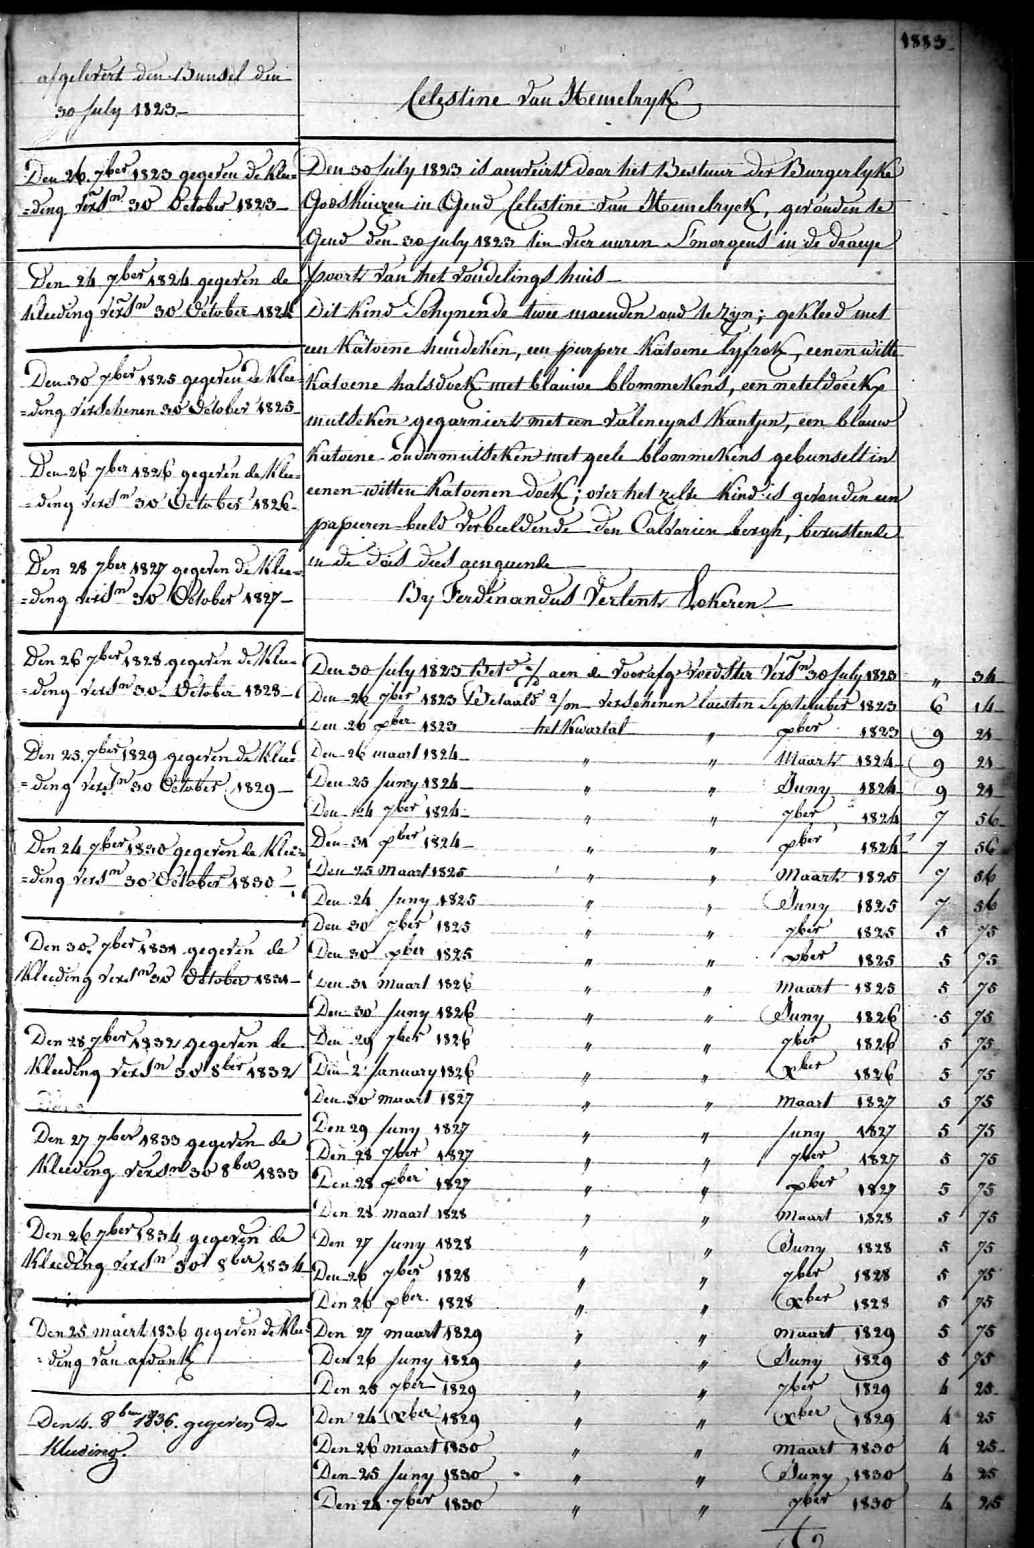 1883
afgelevert den Bunsel den
30 July 1823
Den 26 7ber 1823 gegeven de klee=
=ding versn 30 October 1823
Den 24 7ber 1824 gegeven de
kleeding versn 30 October 1824
Den 30 7ber 1825 gegeven de klee=
=ding verschenen 30 October 1825
Den 26 7ber 1826 gegeven de klee=
=ding versn 30 October 1826
Den 28 7ber 1827 gegeven de klee=
=ding versn 30 October 1827
Den 26 7ber 1828 gegeven de klee=
=ding versn 30 October 1828
Den 25 7ber 1829 gegeven de klee
=ding versn 30 October 1829
Den 24 7ber 1830 gegeven de klee=
=ding versn 30 October 1830
Den 30 7ber 1831 gegeven de
kleeding versn 30 October 1831
Den 28 7ber 1832 gegeven de
kleeding versn 30 8ber 1832
Den 27 7ber 1833 gegeven de
kleeding versn 30 8ber 1833
Den 26 7ber 1834 gegeven de
kleeding versn 30 8ber 1834
Den 25 maert 1836 gegeven de klee=
=ding van afdank
Den 4 8ber 1836 gegeven de
kleeding.
Celestine van Hemelryk
Den 30 July 1823 is aenveirt door het Bestuur der Burgerlyke
Godshuizen in Gend Celestine van Hemelryck, gevonden te
Gend den 30 July 1823 ten vier uuren Smorgens in de draeye
poorte van het vondelings huis
Dit kind Schynende twee maenden oud te zyn; gekleed met
een katoene hemdeken, een purpere katoene lyfrok, eenen witte
katoene halsdoek met blauwe blommekens, een neteldoeckx
mutseken gegarniert met een valencyns kantjen, een blauw
katoene ondermutseken met geele blommekens gebunselt in
eenen witten katoenen doek; over het zelve kind is gevonden een
papieren beeld verbeeldende den Calvarien bergh, berustende
in de dois dees aengaende
By Ferdinandus Verlent Lokeren
Den 30 July 1823 Bet aen de voorafge voedster versn 30 July 1823 " 34
Den 26 7ber 1823 Betaald verschenen laesten September 1823 6 14
Den 26 xber 1823 het kwartal " xber 1823 9 21
Den 26 maart 1824 " " Maart 1824 9 21
Den 25 Juny 1824 " " Juny 1824 9 21
Den 24 7ber 1824 " " 7ber 1824 7 56
Den 31 xber 1824 " " xber 1824 7 56
Den 25 Maart 1825 " " Maart 1825 7 56
Den 24 Juny 1825 " " Juny 1825 7 56
Den 30 7ber 1825 " " 7ber 1825 5 75
Den 30 xber 1825 " " xber 1825 5 75
Den 31 Maart 1826 " " Maart 1825 5 75
Den 30 Juny 1826 " " Juny 1826 5 75
Den 29 7ber 1826 " " 7ber 1826 5 75
Den 2 January 1826 " " Xber 1826 5 75
Den 30 maart 1827 " " Maart 1827 5 75
Den 29 Juny 1827 " " Juny 1827 5 75
Den 28 7ber 1827 " " 7ber 1827 5 75
Den 28 xber 1827 " " xber 1827 5 75
Den 28 maart 1828 " " Maart 1828 5 75
Den 27 Juny 1828 " " Juny 1828 5 75
Den 26 7ber 1828 " " 7ber 1828 5 75
Den 26 xber 1828 " " Xber 1828 5 75
Den 27 maart 1829 " " maart 1829 5 75
Den 26 Juny 1829 " " Juny 1829 5 75
Den 25 7ber 1829 " " 7ber 1829 4 25
Den 24 Xber 1829 " " Xber 1829 4 25
Den 26 maart 1830 " " maart 1830 4 25
Den 25 Juny 1830 " " Juny 1830 4 25
Den 24 7ber 1830 " " 7ber 1830 4 25